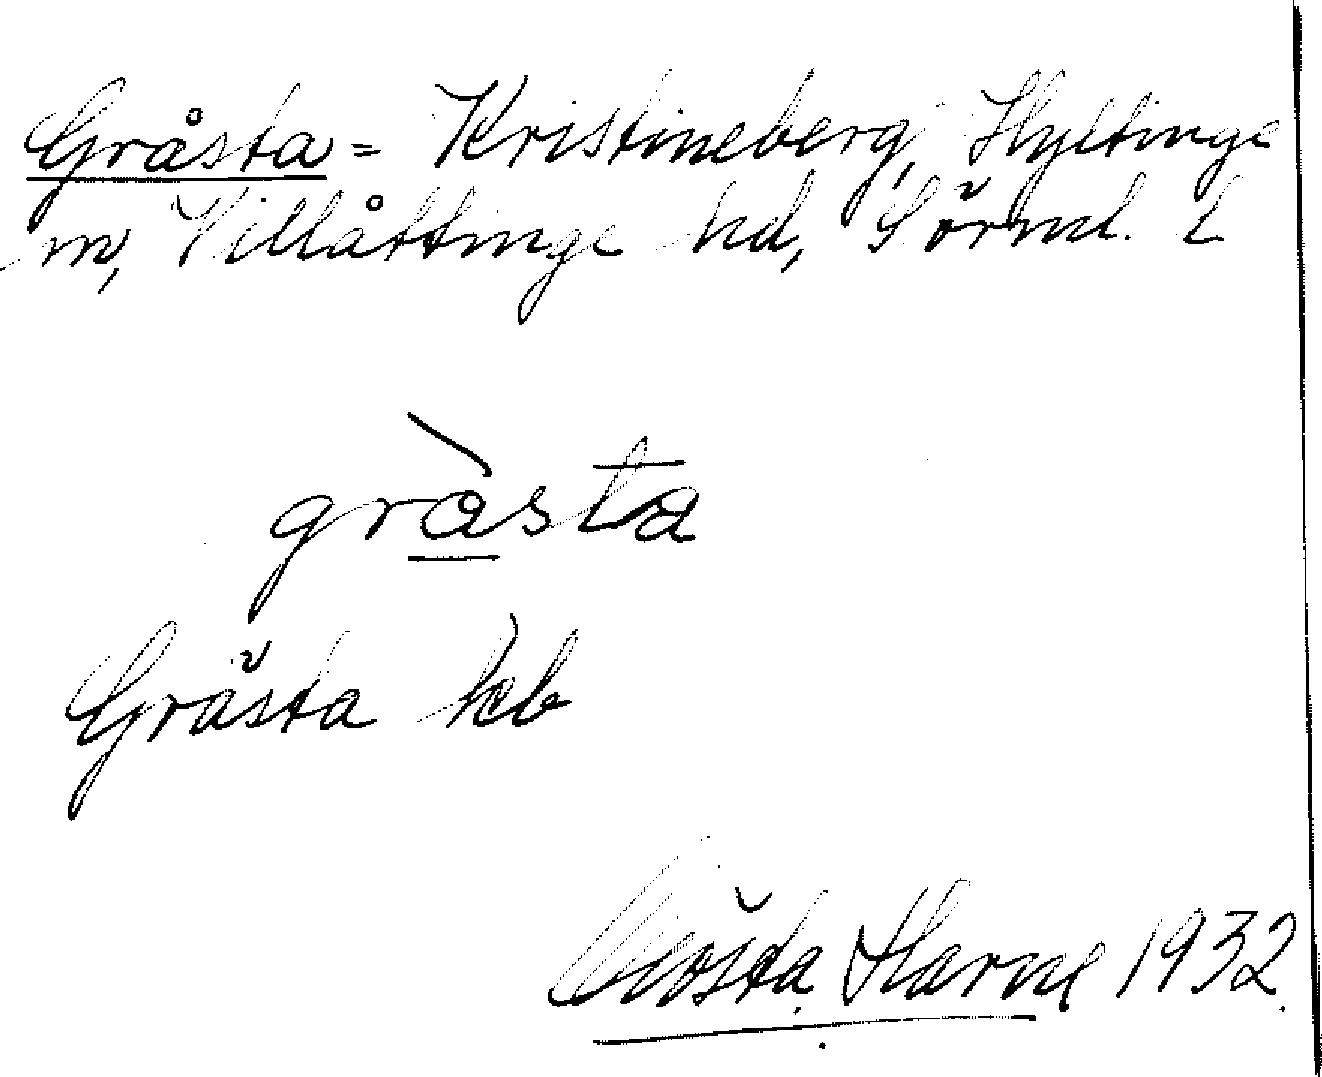 Gråsta = Kristineberg, Hyltinge
sn, Villåttinge hd, Sörml. l
gràsta
Gråsta kb
Harne 1932.